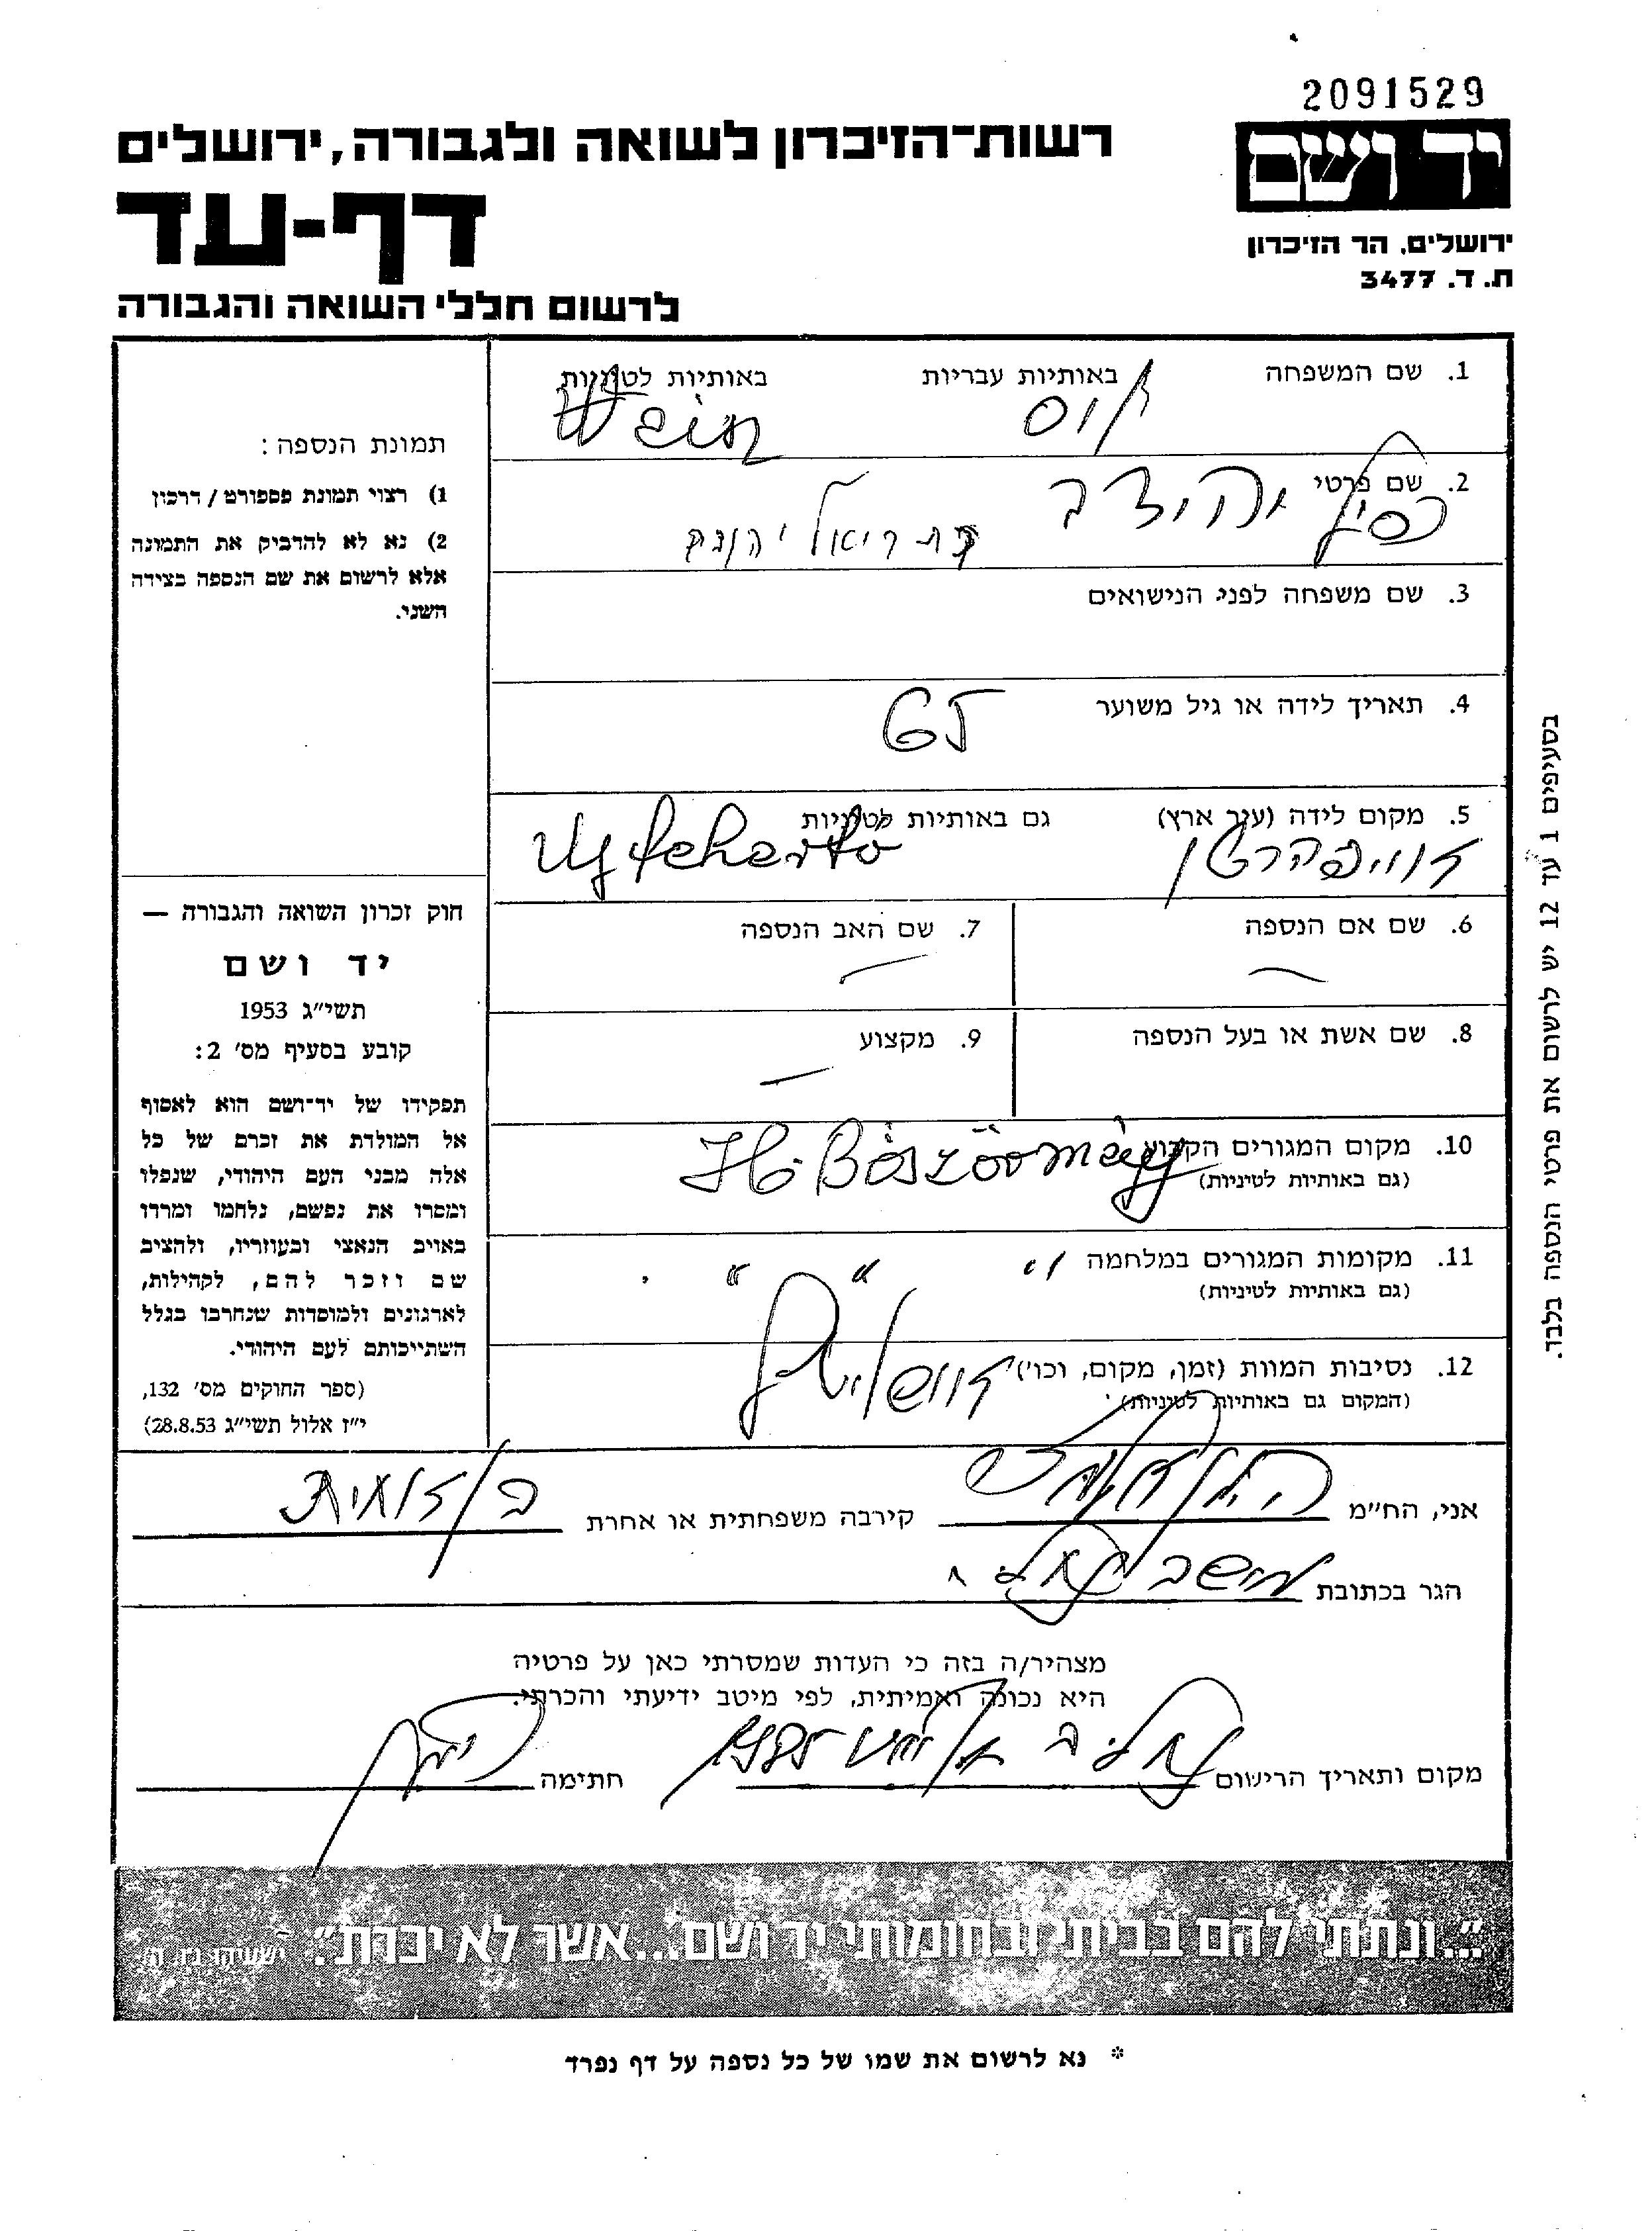 2091529
יד ושם
ירושלים, הר הזיכרון
ת. ד. 3477
רשות-הזיכרון לשואה ולגבורה, ירושלים
דף-עד
לרשום חללי השואה והגבורה
1. שם המשפחה באותיות עבריות באותיות לטיניות
Wein
2. שם פרטי
3. שם משפחה לפני הנישואים
4. תאריך לידה או גיל משוער
65
5. מקום לידה (עיר ארץ) גם באותיות לטיניות
Ujfeherto
6. שם אם הנספה
7. שם האב הנספה
8. שם אשת או בעל הנספה
9. מקצוע
10. מקום המגורים הקבוע H. Böszörmény
(גם באותיות לטיניות)
11. מקומות המגורים במלחמה " " "
(גם באותיות לטיניות)
12. נסיבות המוות (זמן, מקום, וכו') אושויץ
(המקום גם באותיות לטיניות)
תמונת הנספה:
1) רצוי תמונת פספורט / דרכון
2) נא לא להדביק את התמונה
אלא לרשום את שם הנספה בצידה
השני.
חוק זכרון השואה והגבורה —
יד ושם
תשי"ג 1953
קובע בסעיף מס' 2:
תפקידו של יד-ושם הוא לאסוף
אל המולדת את זכרם של כל
אלה מבני העם היהודי, שנפלו
ומסרו את נפשם, נלחמו ומרדו
באויב הנאצי ובעוזריו, ולהציב
שם וזכר להם, לקהילות,
לארגונים ולמוסדות שנחרבו בגלל
השתייכותם לעם היהודי.
(ספר החוקים מס' 132,
י"ז אלול תשי"ג 28.8.53)
בסעיפים 1 עד 12 יש לרשום את פרטי הנספה בלבד.
אני, הח"מ קירבה משפחתית או אחרת
הגר בכתובת מושב
מצהיר/ה בזה כי העדות שמסרתי כאן על פרטיה
היא נכונה ואמיתית, לפי מיטב ידיעתי והכרתי.
מקום ותאריך הרישום חתימה
"...ונתתי להם בביתי ובחומותי יד ושם...אשר לא יכרת". ישעיהו נו, ה'
* נא לרשום את שמו של כל נספה על דף נפרד